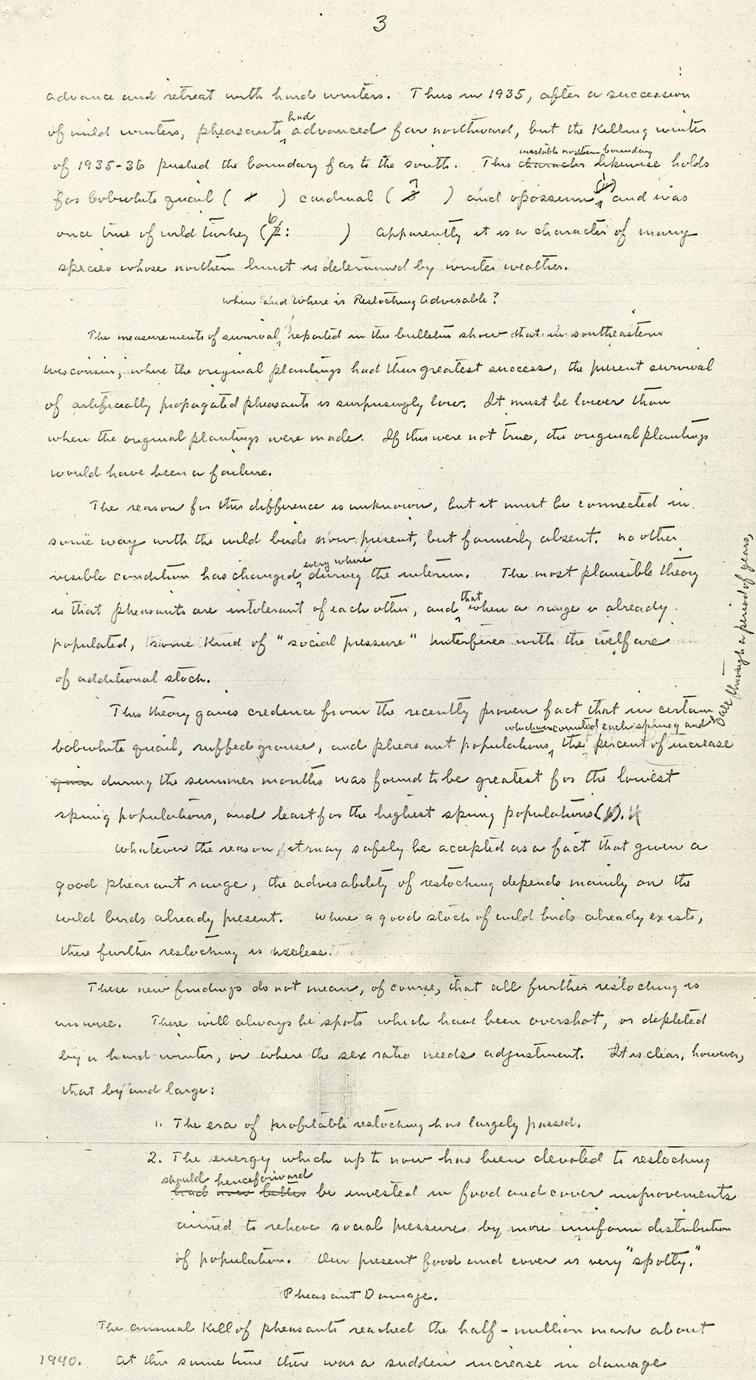 3
advance and retreat with hard winters. Thus in 1935, after a succession
had
of mild winters, pheasants advanced far northward, but the killing winter
unstable northern boundary
of 1935-36 pushed the boundary far to the south. This character likewise holds
for bobwhite quail ( ) cardinal ( ) and opossum, and was
once true of wild turkey ( ) Apparently it is a character of many
species whose northern limit is determined by winter weather.
When and Where is Restocking Advisable?
The measurements of survival reported in this bulletin show that in southeastern
Wisconsin, where the original plantings had their greatest success, the present survival
of artificially propagated pheasants is surprisingly low. It must be lower than
when the original plantings were made. If this were not true, the original plantings
would have been a failure.
The reason for this difference is unknown, but it must be connected in
some way with the wild birds now present, but formerly absent. No other
everywhere
visible condition has changed during the interim. The most plausible theory
that
is that pheasants are intolerant of each other, and when a range is already
populated, some kind of "social pressure" interferes with the welfare
of additional stock.
This theory gains credence from the recently proven fact that in certain
which were counted each spring and fall through a period of years,
bobwhite quail, ruffed grouse, and pheasant populations, the percent of increase
gain during the summer months was found to be greatest for the lowest
spring populations, and least for the highest spring populations ( ).
Whatever the reason, it may safely be accepted as a fact that given a
good pheasant range, the advisability of restocking depends mainly on the
wild birds already present. Where a good stock of wild birds already exists,
then further restocking is useless.
These new findings do not mean, of course, that all further restocking is
unwise. There will always be spots which have been overshot, or depleted
by a hard winter, or where the sex ratio needs adjustment. It is clear, however,
that by and large:
1. The era of profitable restocking has largely passed.
2. The energy which up to now has been devoted to restocking
should henceforward
had now better be invested in food and cover improvements
aimed to relieve social pressures by more uniform distribution
of population. Our present food and cover is very "spotty."
Pheasant Damage.
The annual kill of pheasants reached the half-million mark about
1940. At this same time there was a sudden increase in damage